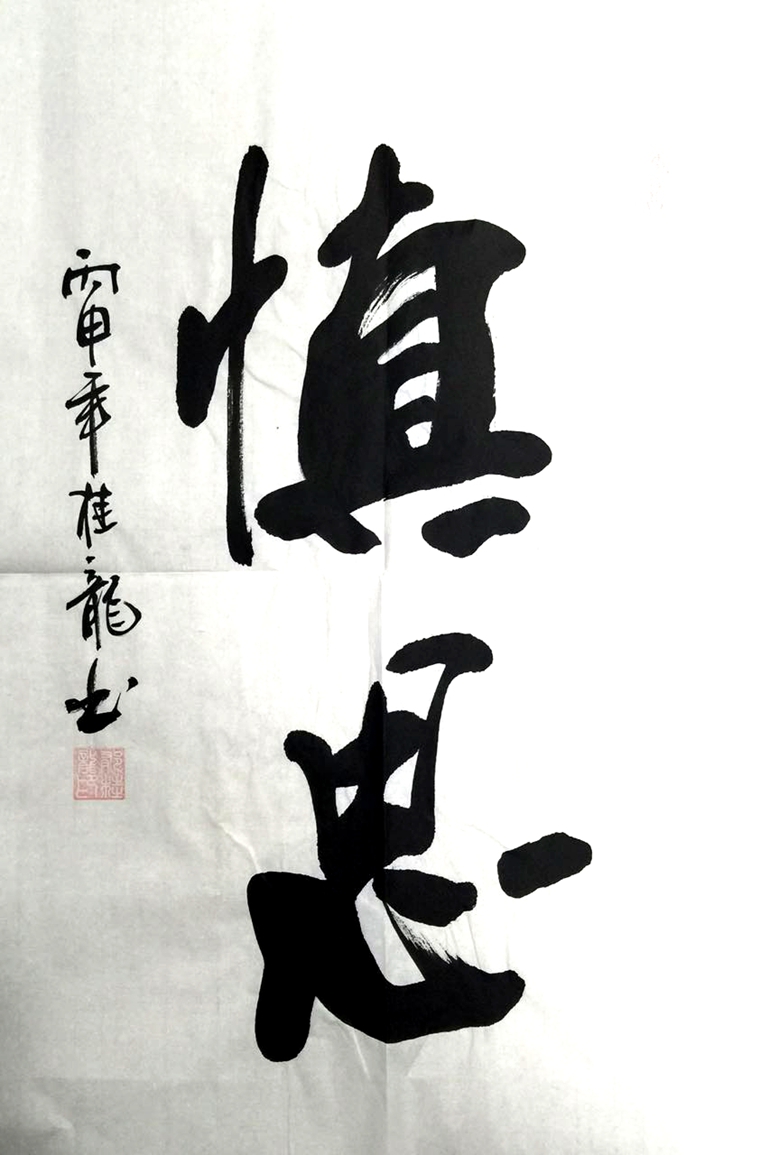 慎思
丙申年桂龍书